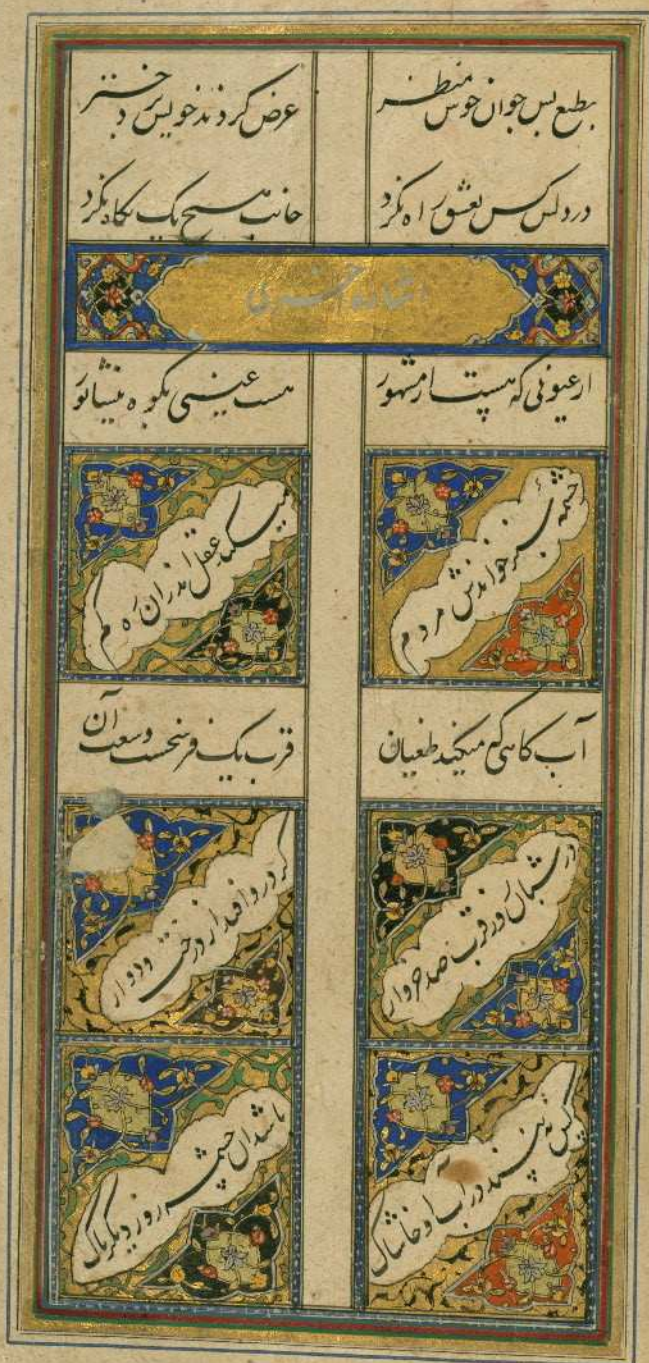 بطمع بس جوان خوش منظر عرض کردند خویش بر دختر
در دلش کس بعشق راه نکرد جانب هیچ یک نکاه نکرد
اشاره اخری
از عیونی که هست از مشهور هست عینی بکوه نیشابور
چشمه سبز خواندش مردم میکند عقل اندران ره کم
آب کاهی میکند طغیان قرب یک فرسخست وسعت آن
در قرب صد خروار کر درو افتد از درخت و دوار
کس نه بیند در آب او خاشاک باشد آن چشمه روز دیکر پاک